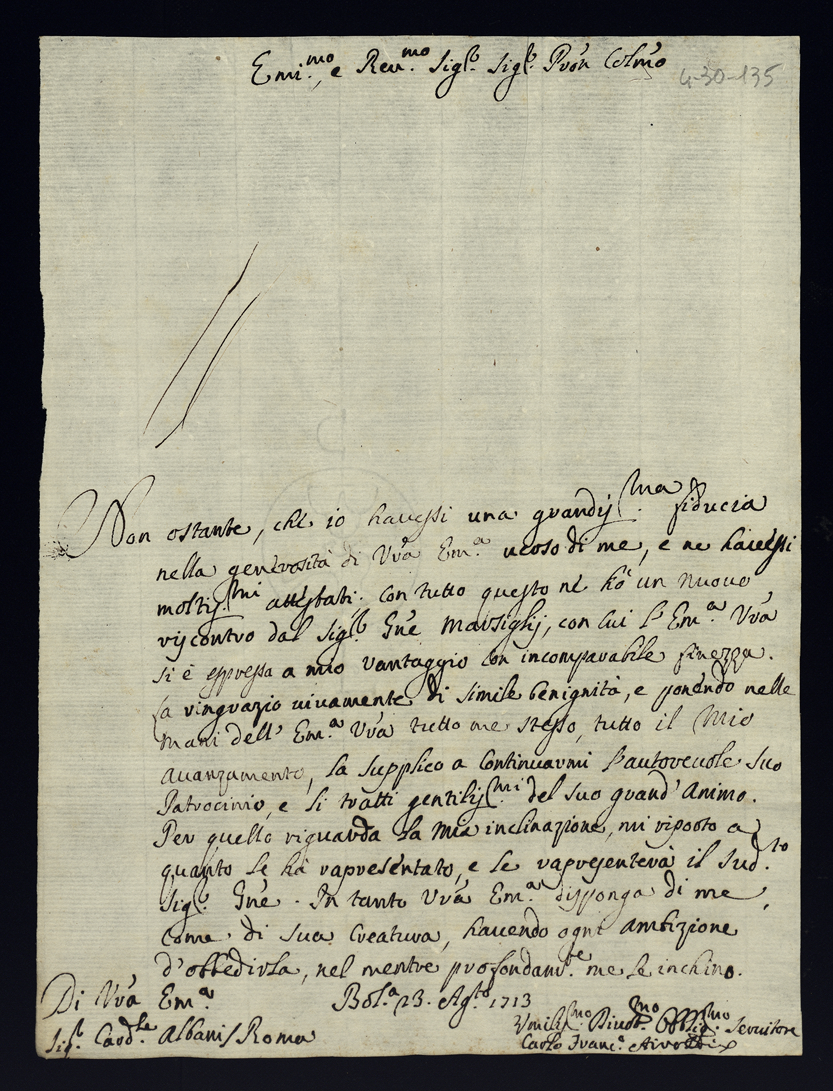 Emi.mo, e Reu.mo Sig.r Sig.r Prōn Colmo
4-30-135
Non ostante, che io hauessi una grandiss.ma fiducia
nella generosità di Vrā Em.a uerso di me, e ne hauessi
moltiss.mi attestati, con tutto questo ne hò un nuouo
riscontro dal Sig.r Gne Marsiglij, con cui l'Em.a Vrā
si è espressa a mio vantaggio con incomparabile finezza.
la ringrazio uiuamente di simile benignità, e ponendo nelle
mani dell'Em.a Vrā tutto me stesso, tutto il Mio
auanzamento, la supplico a Continuarmi l'autoreuole suo
Patrocinio, e li tratti gentiliss.mi del suo grand'Animo.
Per quello riguarda la mia inclinazione, mi riporto a
quanto le hà rapresentato, e le rapresenterà il sud.to
Sig.r Gne. In tanto Vrā Em.a disponga di me,
come di sua Creatura, hauendo ogni ambizione
d'obbedirla, nel mentre profondam.te me le inchino.
Di Vrā Em.a Bol.a 23. Ag.to 1713
Sig.r Card.le Albani / Roma
Vmiliss.mo Diuot.mo Obblig.mo Seruitore
Carlo Franc.o